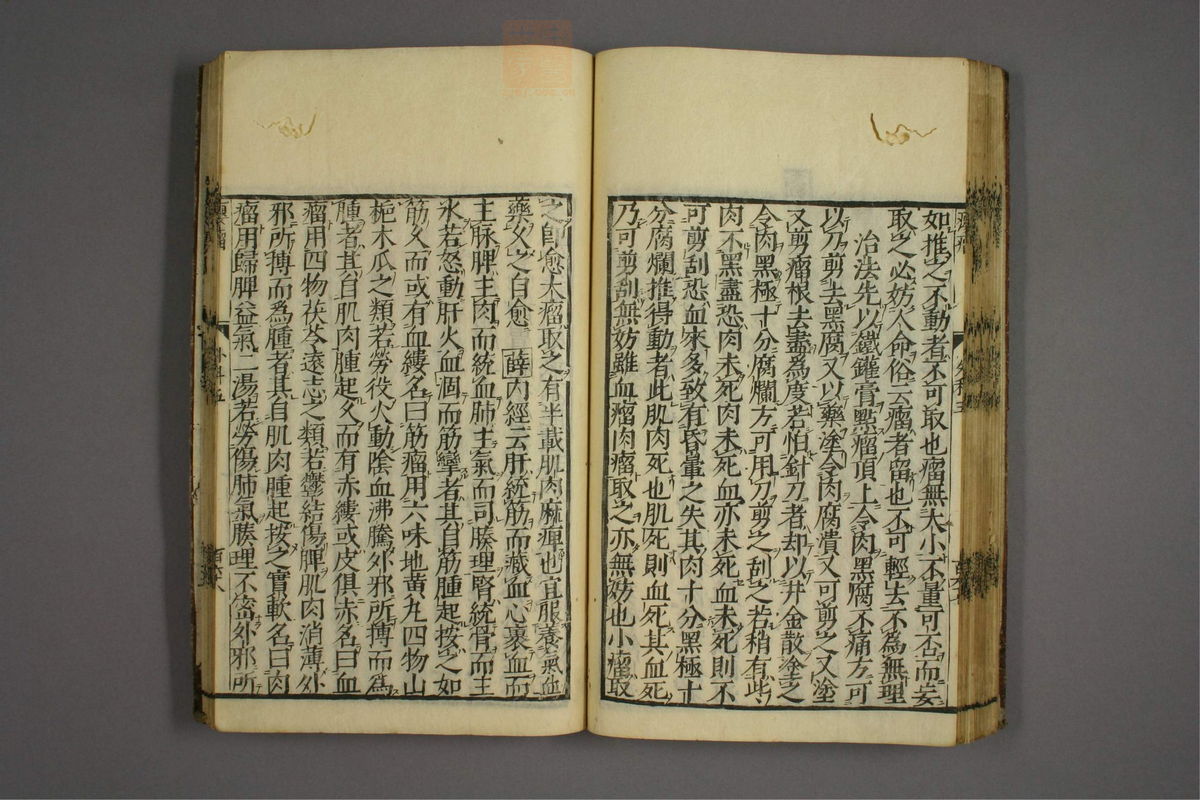 如推之不動者不可取也瘤無大小不量可否而妄
取之必妨人命俗云瘤者留也不可輕去不為無理
治法先以鐵鑵膏點瘤頂上令肉黑腐不痛方可
以刀剪去黑腐又以藥塗令肉腐潰又可剪之又塗
又剪瘤根去盡為度若怕針刀者却以井金散塗之
令肉黑極十分腐爛方可用刀剪之刮之若稍有些
肉不黑盡恐肉未死肉未死血亦未死血未死則不
可剪刮恐血來多致有昏暈之失其肉十分黑極十
分腐爛推得動者此肌肉死也肌死則血死其血死
乃可剪刮無妨雖血瘤肉瘤取之亦無妨也小瘤取
之即愈大瘤取之有半載肌肉麻痺也宜服養氣血
藥久之自愈 薛 內經云肝統筋而藏血心裹血而
主脉脾主肉而統血肺主氣而司腠理腎統骨而主
水若怒動肝火血涸而筋攣者其自筋腫起按之如
筋久而或有血縷名曰筋瘤用六味地黃丸四物山
梔木瓜之類若勞役火動陰血沸騰外邪所搏而為
腫者其自肌肉腫起久而有赤縷或皮俱赤名曰血
瘤用四物茯苓遠志之類若鬱結傷脾肌肉消薄外
邪所搏而為腫者其自肌肉腫起按之實軟名曰肉
瘤用歸脾益氣二湯若勞傷肺氣腠理不密外邪所